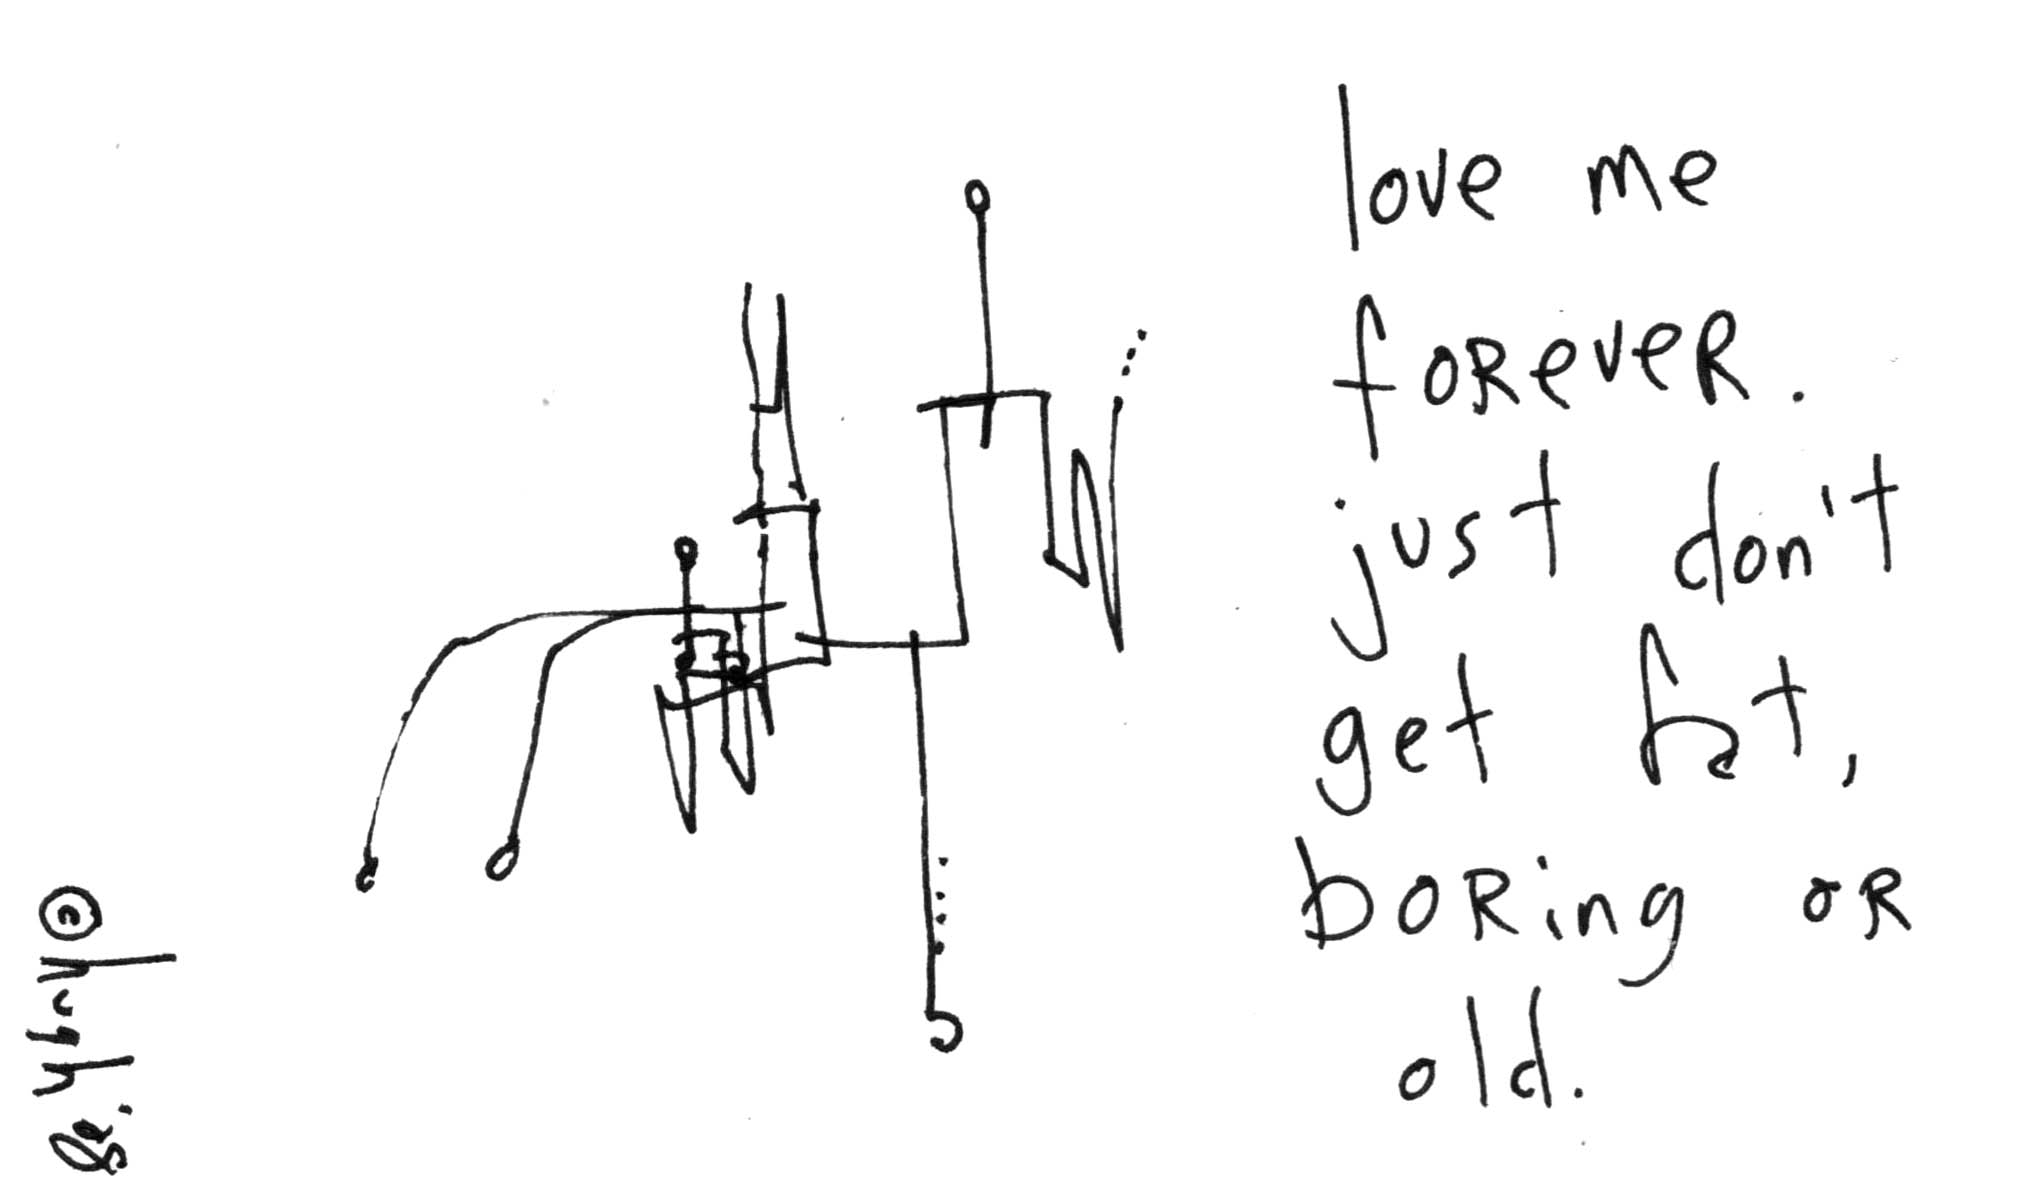 love me
foReveR.
just don't
get fat,
boRing oR
old.
©